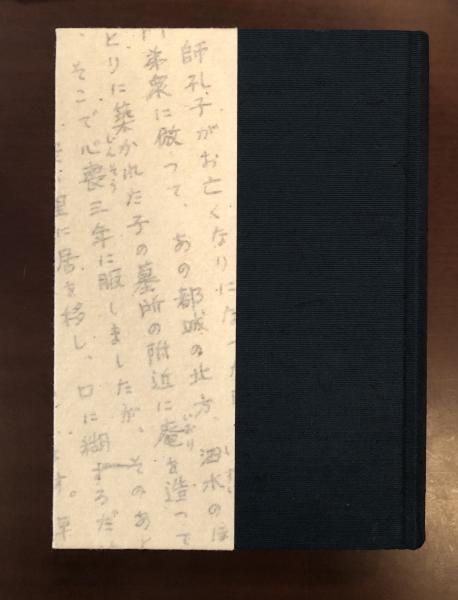 師孔子がお亡くなりになった
弟衆に倣って、あの都城の北方、泗水のほ
とりに築かれた子の墓所の附近に庵を造って
いおり
そこで心喪三年に服しましたが、そのあと
しんそう
里に居を移し、口に糊するだ
す。草